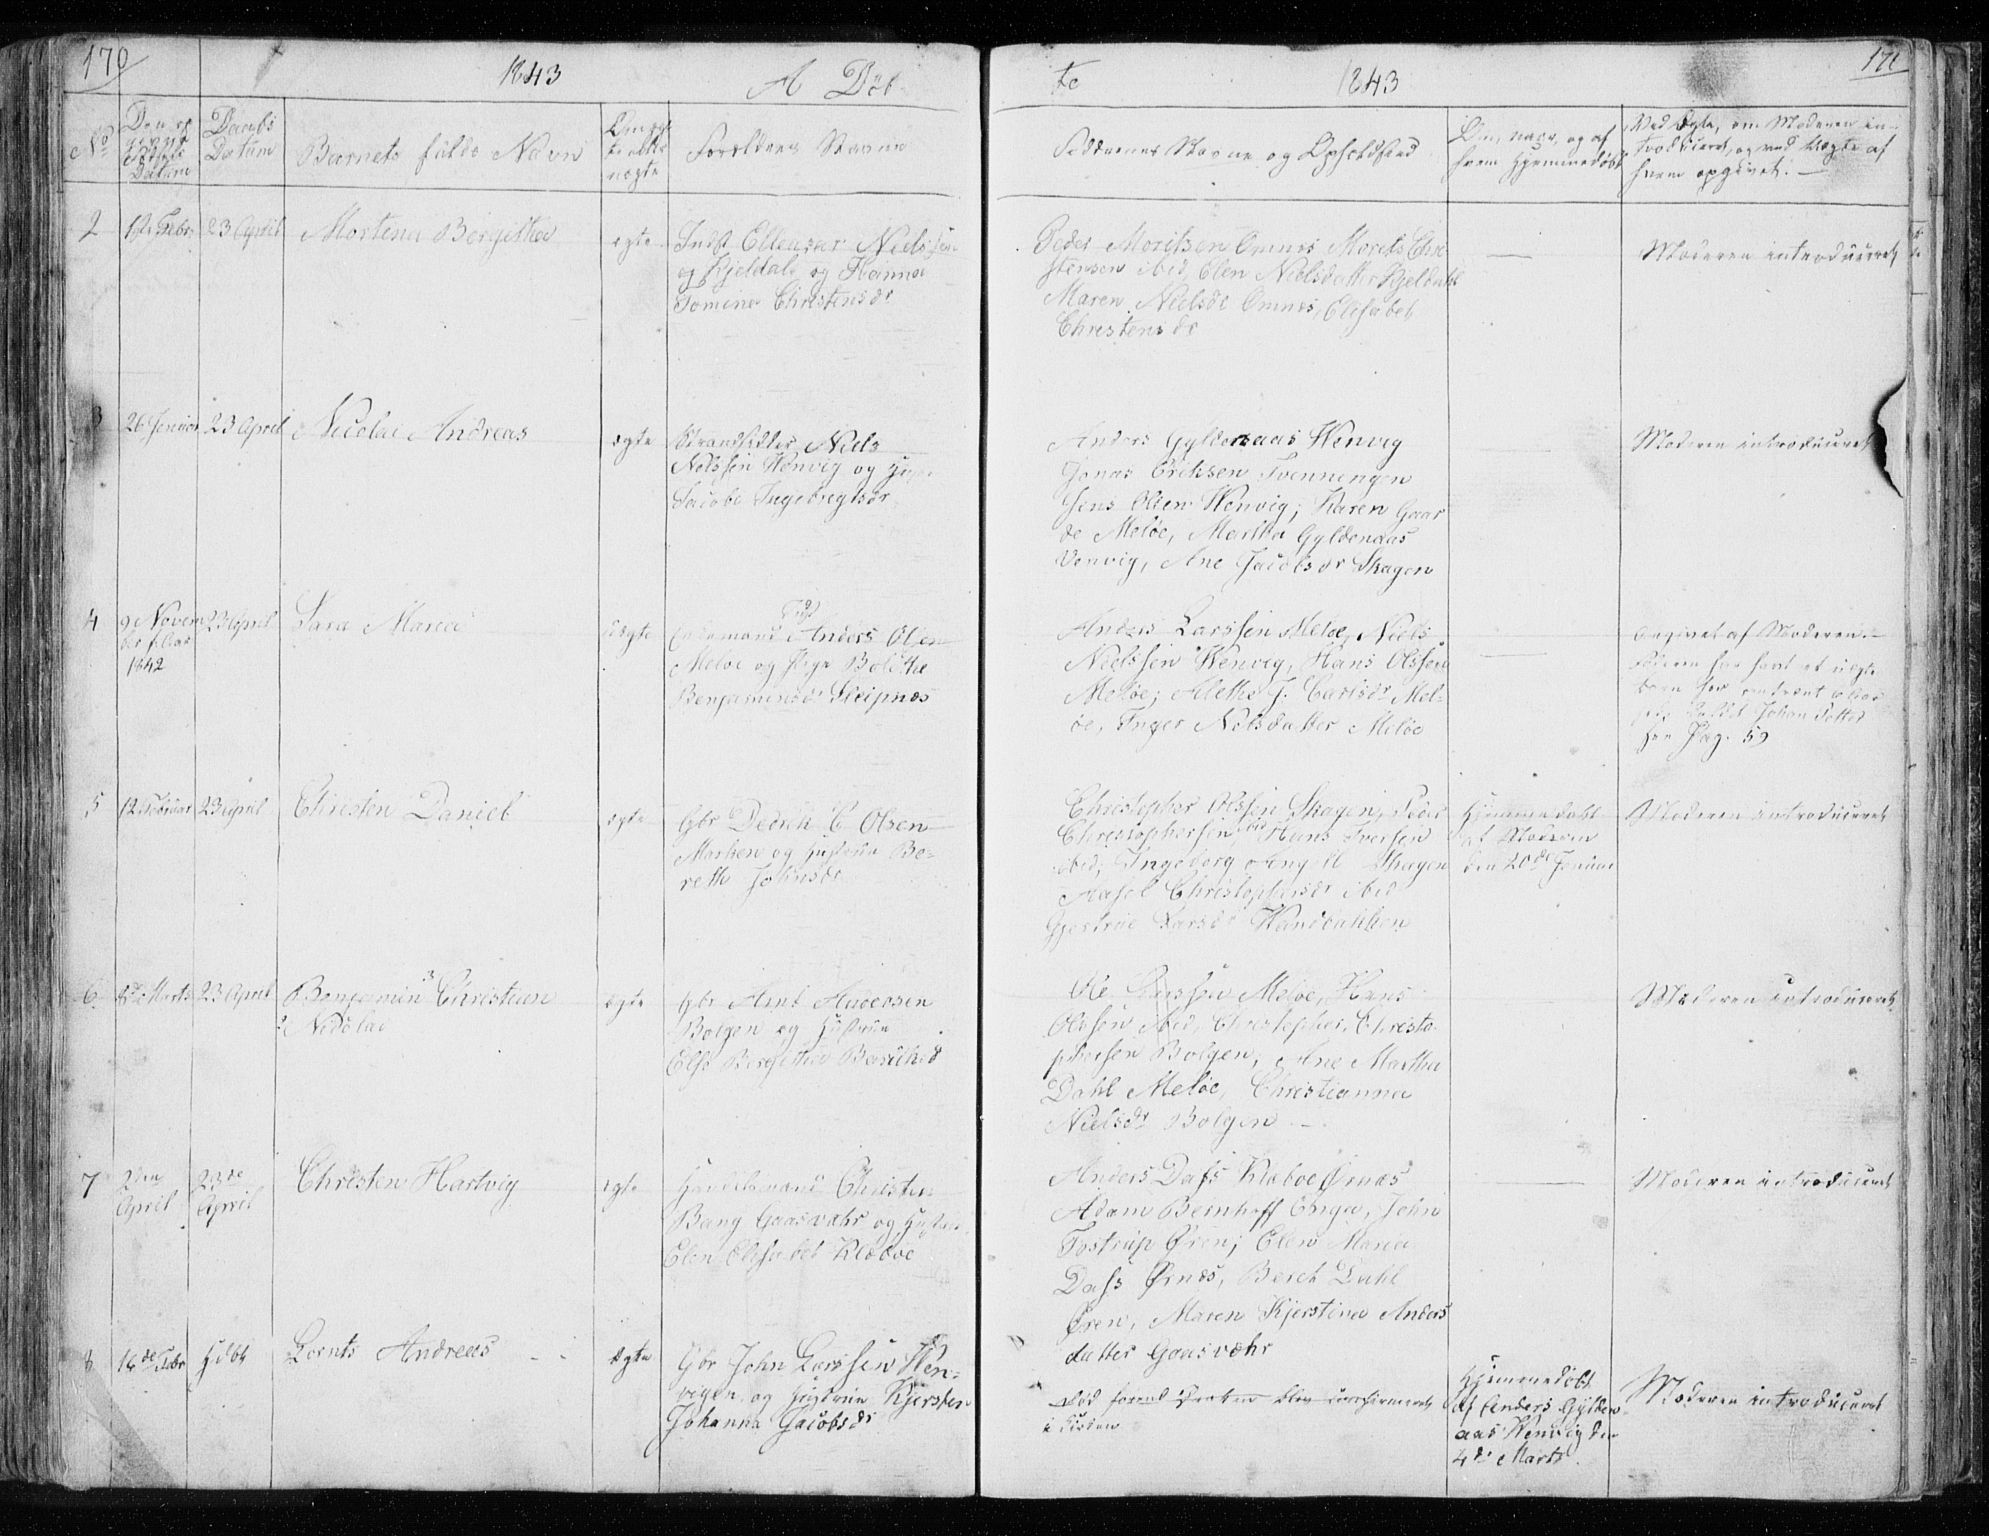 170
1843
A Døb
No
Den op
givne
Fødsels
Datum
Daabs
Datum
Barnets fulde Navn
Om ægte
eller
uægte
Forældrenes Navne
2
12 Febr
23 April
Mortena Bergitha
ægte
Indst Elleasar Nielssen
Kjeldal og Hanna
Tomina Christensdr
3
26 Januar
23 April
Nicolai Andreas
ægte
Strandsidder Niels
Nelssen Wenvig og
Jacobe Ingebregtsdr
4
9 Novem
ber f. Aar
1842
23 April
Sara Maria
uægte
Enkemand Anders Olsen
Meløe og Pige Bolethe
Benjaminsdr Sleipnæs
5
12 Februar
23 April
Christen Daniel
ægte
Gbr Dedrik C Olsen
Marken og Hustrue Be-
reth Johnsdr
6
Marts
23 April
Benjamin 3 Christian
2 Nicolai
ægte
Gbr Arnt Andersen
Bolgen og Hustrue
Else Bergitha
7
2den
April
23de
April
Christen Hartvig
ægte
Handelsmand Christen
Bang Gaasvær og Hustrue
Elen Elisabet Klæboe
8
16de Febr
Hdbt
Lornts Andreas
ægte
Gbr John Larssen Wen-
vigen og Hustrue Kjersten
Johanna Jacobsdr
171
te
1843
Faddernes Navne og Opholdsted
Om, naar, og af
hvem Hjemmedøbt
Ved Ægte, om Moderen in-
troduceret, og ved Uægte af
hvem opgivet.
Peder Moritsen Ømnes Morets Chri
stensen ibid, Elen Nielsdatter Kjeldahl
Maren Nielsdr Ømnes, Elisabet
Christensdr
Moderen introduceret
Anders Gyldenaas Wenvig
Jonas Eriksen Svenningen
Jens Olsen Wenvig; Karen Gaar
de Meløe, Martha Gyldenaas
Venvig, Ane Jacobsdr Skagen
Moderen introduceret
Anders Larssen Meløe, Niels
Nielssen Wenvig, Hans Olssen
Meløe; Alethe J. Carlsdr Mel-
øe, Inger Nelsdatter Meløe
Angivet af Moderen.
Faderen har havt et uægte
Barn før
Johan Petter
see Pag. 59
Christopher Olssen Skagen, Peder
Christophersen ibid, Hans Iversen
ibid; Ingeborg Skagen
Christophersdr ibid
Gjertrue Larsdr Wandbakken
Hjemmedøbt
af Moderen
den 20de Januar
Moderen introduceret
Ole Larssen Meløe, Hans
Olssen ibid, Christopher Christo-
phersen Bolgen; Ane Martha
Dahl Meløe, Christianna
Nielsdr Bolgen
Moderen introduceret
Anders Dass Klæboe Ørnæs
Adam Bernhoff Enga, John
Tostrup Øren; Elen Maria
Dass Ørnæs, Beret Dahl
Øren, Maren Kjerstina Anders
datter Gaasvæhr
Moderen introduceret
Død forend Daaben blev confirmeret
i Kirken
Hjemmedøbt
af Anders Gylden
aas Wenvig den
4de Marts
Moderen introduceret